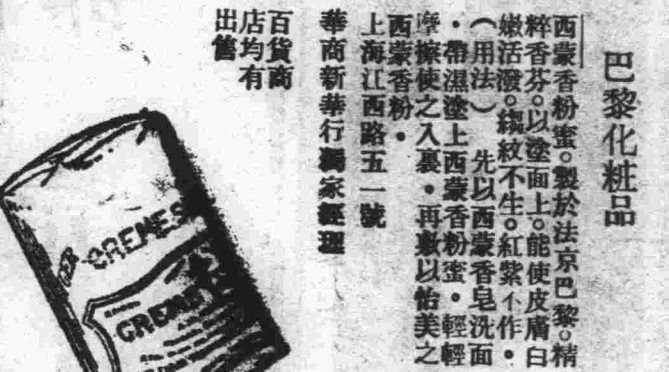 巴黎化粧品
西蒙香粉蜜。製於法京巴黎。精
粹香芬。以塗面上。能使皮膚白
嫩活潑。縐紋不生。紅紫不作。
（用法）　先以西蒙香皂洗面
・帶濕塗上西蒙香粉蜜・輕輕
摩擦使之入裏・再敷以怡美之
西蒙香粉・
上海江西路五一號
華商新華行獨家經理
百貨商
店均有
出售
CREMES
CREME